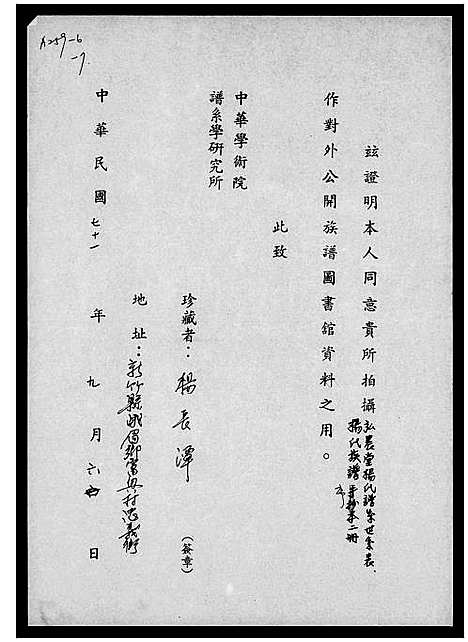 A259-6
-7
茲證明本人同意貴所拍攝弘農堂楊氏譜系世系表、
楊氏族譜手抄本二冊
作對外公開族譜圖書館資料之用。
此致
中華學術院
譜系學研究所
珍藏者：楊長潭（簽章）
地址：新竹縣峨眉鄉富興村
中華民國七十一年九月六日